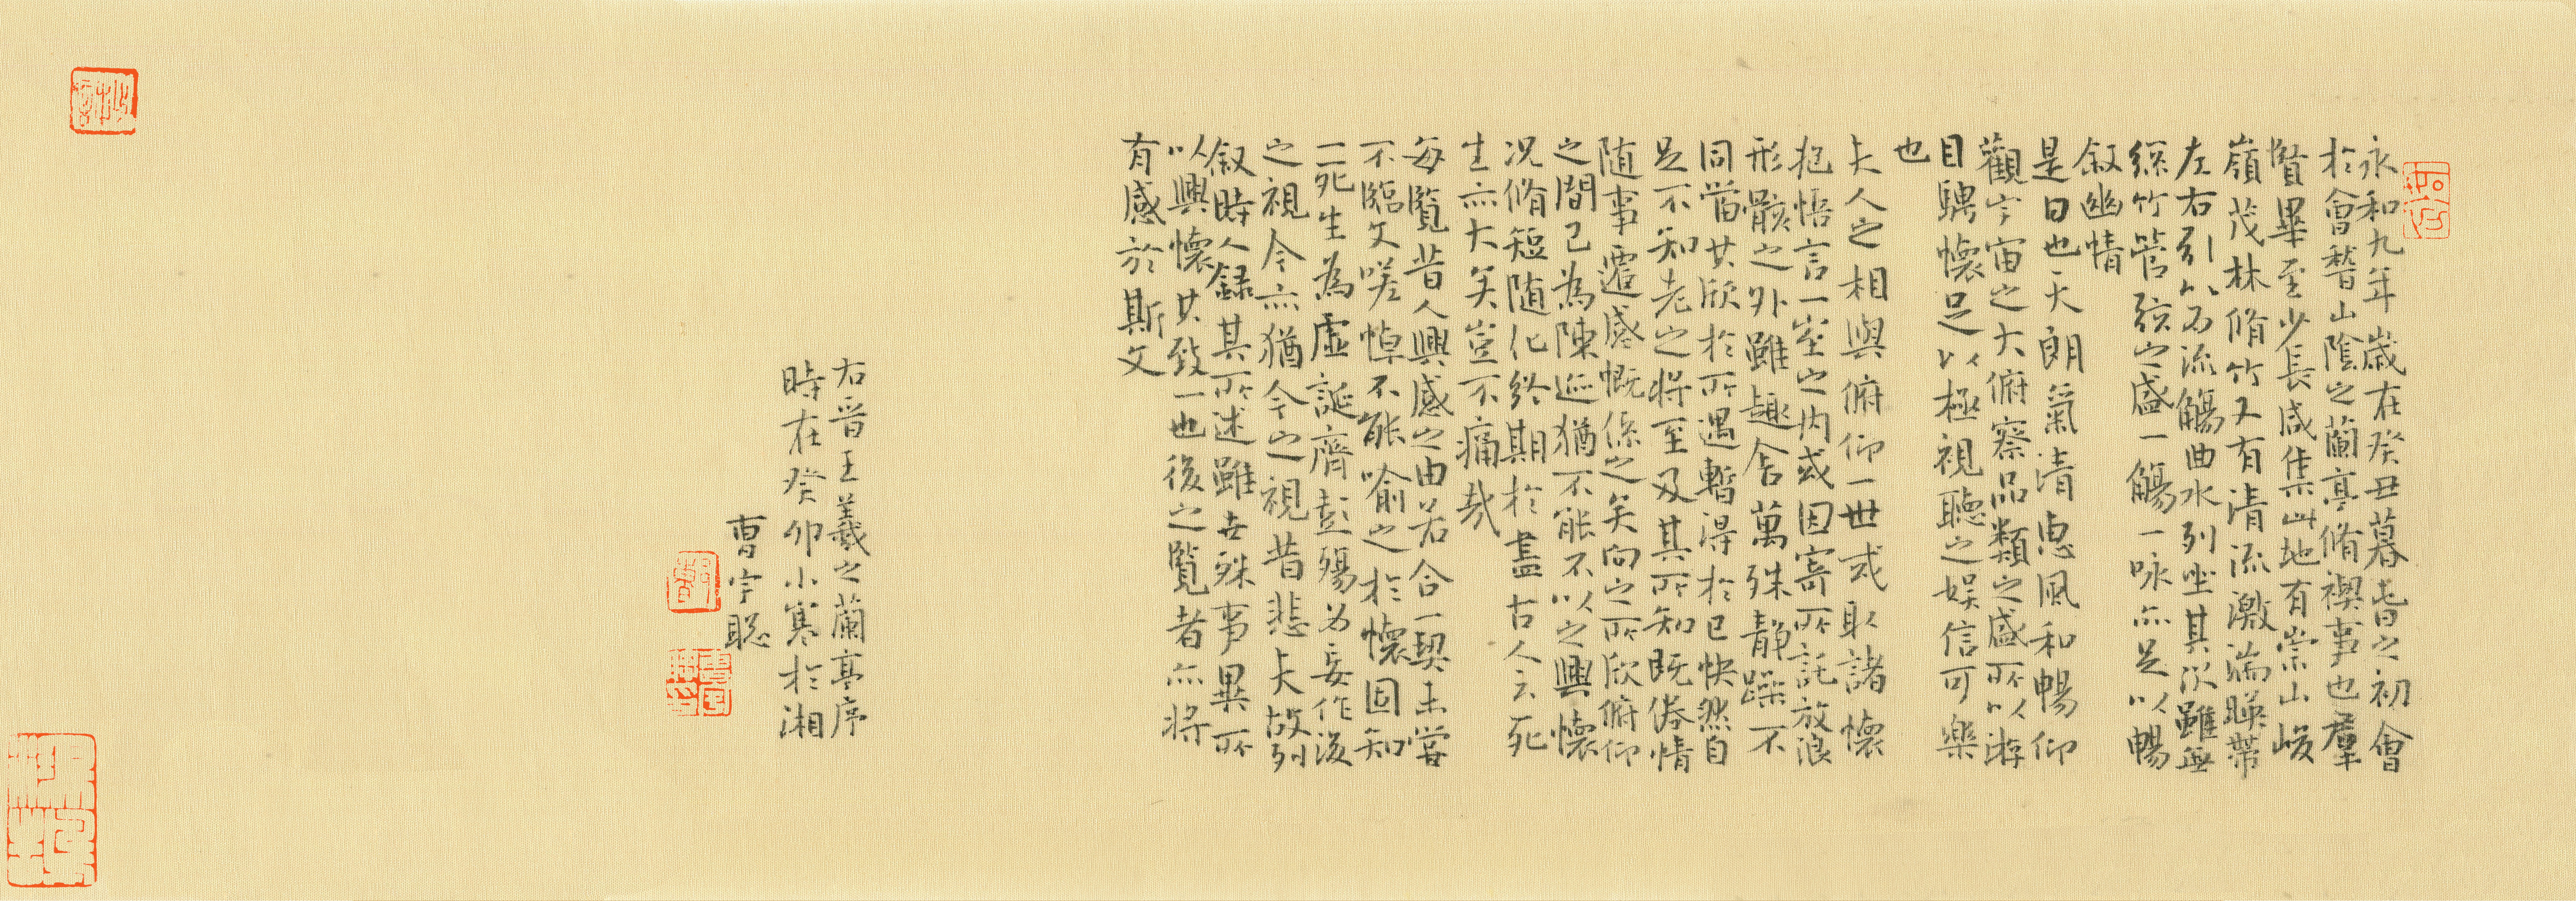 永和九年歲在癸丑暮春之初會
於會稽山陰之蘭亭脩禊事也羣
賢畢至少長咸集此地有崇山峻
嶺茂林脩竹又有清流激湍暎帶
左右引以為流觴曲水列坐其次雖無
絲竹管弦之盛一觴一咏亦足以暢
叙幽情
是日也天朗氣清惠風和暢仰
觀宇宙之大俯察品類之盛所以游
目騁懷足以極視聽之娛信可樂
也
夫人之相與俯仰一世或取諸懷
抱悟言一室之内或因寄所託放浪
形骸之外雖趣舍萬殊静躁不
同當其欣於所遇暫得於己快然自
足不知老之將至及其所知既倦情
随事遷感慨係之矣向之所欣俯仰
之間已為陳迹猶不能不以之興懷
况脩短随化終期於盡古人云死
生亦大矣豈不痛哉
每覧昔人興感之由若合一契未嘗
不臨文嗟悼不能喻之於懷固知
一死生為虛誕齊彭殤為妄作後
之視今亦猶今之視昔悲夫故列
叙時人録其所述雖世殊事異所
以興懷其致一也後之覧者亦將
有感於斯文
右晋王羲之蘭亭序
時在癸卯小寒於湘
曹宇聡